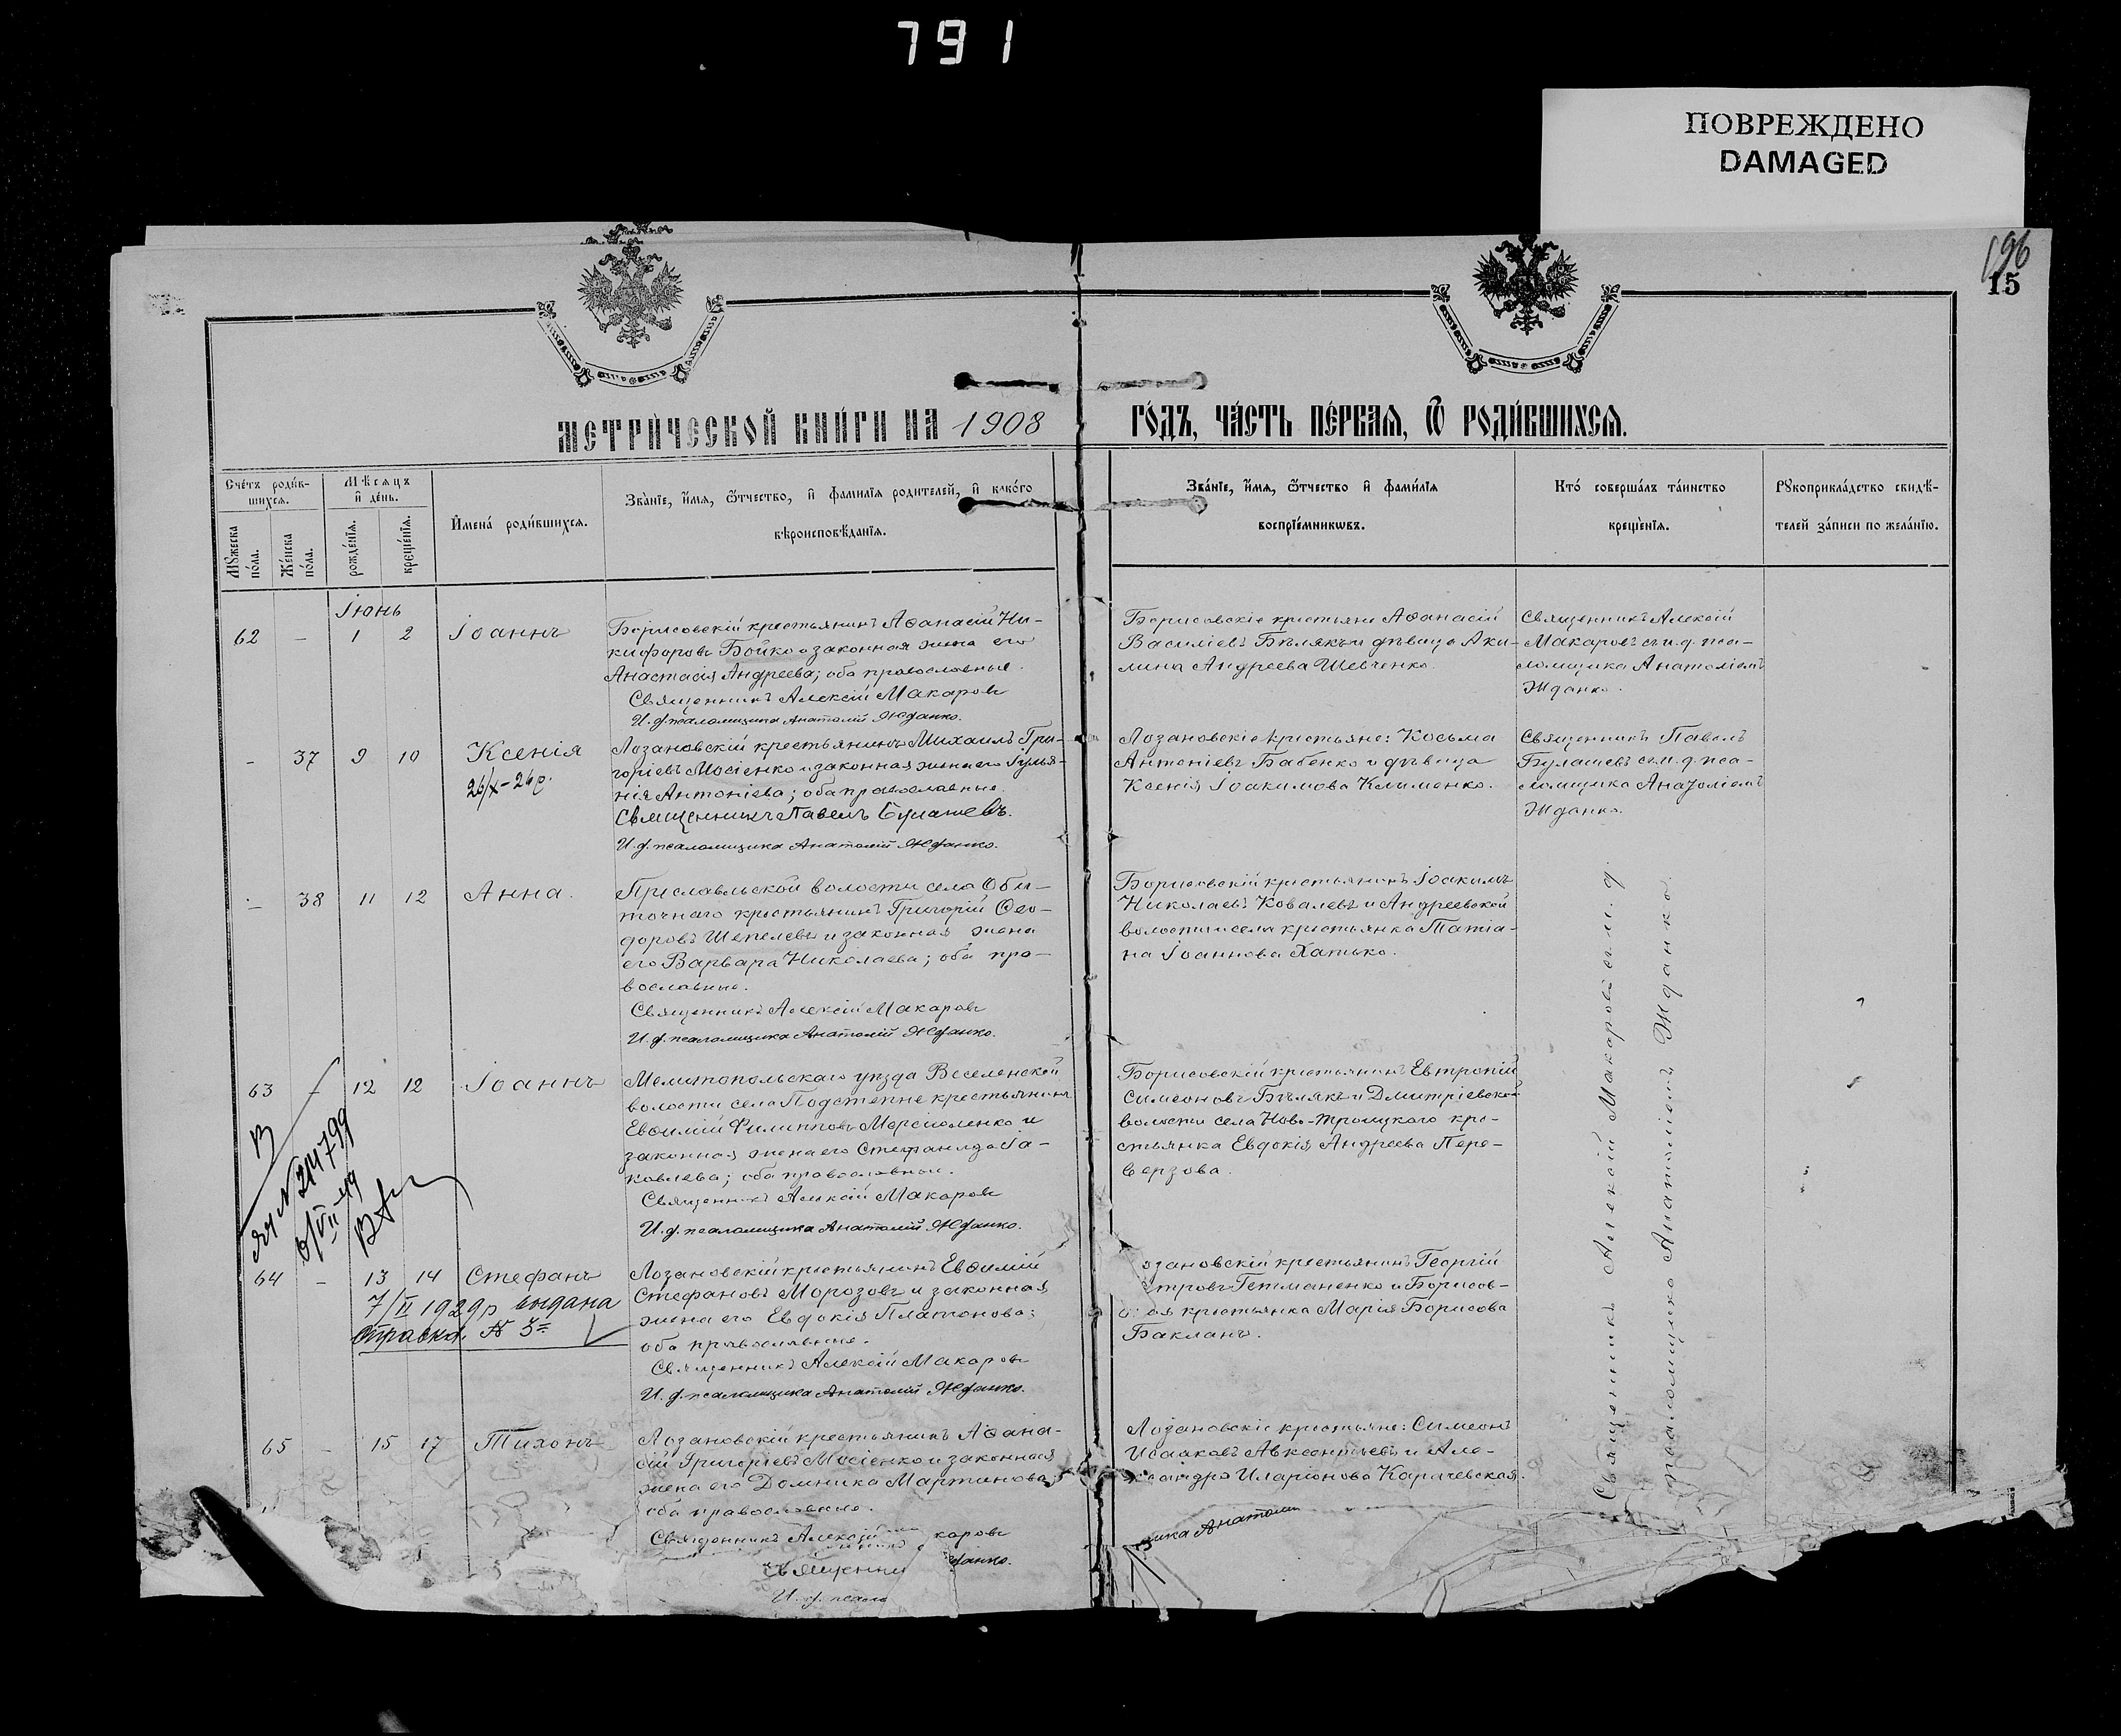 791
ПОВРЕЖДЕНО
DAMAGED
196
15
МЕТРИ́ЧЕСКОЙ КНИ́ГИ НА 1908
ГО́ДЪ, ЧА́СТЬ ПЕ́РВАѦ, Ѿ РОДИ́ВШИХСѦ.
Сче́тъ роди́в-
шихсѧ.
Мѣсѧцъ
и҆ де́нь.
Мꙋжеска по́ла.
Же́нска по́ла.
рожде́нїѧ.
креще́нїѧ.
И҆мена̀ роди́вшихсѧ.
Зва́нїе, и҆́мѧ, ѻ҆́тчество, и҆ фами́лїѧ роди́телей, и҆ како́гѡ
вѣроисповѣ́данїѧ.
Зва́нїе, и҆́мѧ, ѻ҆́тчество и҆ фами́лїѧ
воспрїе́мникѡвъ.
Кто̀ соверша́лъ та́инство
креще́нїѧ.
Рꙋкоприкла́дство свидѣ́-
телей за́писи по жела́нїю.
Іюнь
62 – 1 2 Іоаннъ
Борисовскій крестьянинъ Аѳанасій Ни-
кифоровъ Бойко и законная жена его
Анастасія Андреева; оба православные.
Священникъ Алексій Макаровъ
И. д. псаломщика Анатолій Жданко.
Борисовскіе крестьяне Аѳанасій
Василіевъ Бѣлякъ и дѣвица Аки-
лина Андреева Шевченко.
Священникъ Алексій
Макаровъ съ и. д. пса-
ломщика Анатоліемъ
Жданко.
– 37 9 10 Ксенія
26/X–26 р.
Лозановскій крестьянинъ Михаилъ Гри-
горіевъ Мосіенко и законная жена его Іулья-
нія Антоніева; оба православные.
Священникъ Павелъ Булашевъ.
И. д. псаломщика Анатолій Жданко.
Лозановскіе крестьяне: Косьма
Антоніевъ Бабенко и дѣвица
Ксенія Іоакимова Клименко.
Священникъ Павелъ
Булашевъ съ и. д. пса-
ломщика Анатоліемъ
Жданко.
– 38 11 12 Анна.
Приславльской волости села Оби-
точнаго крестьянинъ Григорій Ѳео-
доровъ Шепелевъ и законная жена
его Варвара Николаева; оба пра-
вославные.
Священникъ Алексій Макаровъ
И. д. псаломщика Анатолій Жданко.
Борисовскій крестьянинъ Іоакимъ
Николаевъ Ковалевъ и Андреевской
волости и села крестьянка Татіа-
на Іоаннова Хатько.
63 – 12 12 Іоаннъ
Мелитопольскаго уѣзда Веселенской
волости села Подстепне крестьянинъ
Евѳимій Филипповъ и
законная жена его Стефанида Іа-
ковлева; оба православные.
Священникъ Алексій Макаровъ
И. д. псаломщика Анатолій Жданко.
Борисовскій крестьянинъ Евтропій
Симеоновъ Бѣлякъ и Димитріевской
волости села Ново-Троицкаго кре-
стьянка Евдокія Андреева Пере-
верзова.
64 – 13 14 Стефанъ
7/II 1929 р выдана
справка № 3=
Лозановскій крестьянинъ Евѳимій
Стефановъ Морозовъ и законная
жена его Евдокія Платонова;
оба православные.
Священникъ Алексій Макаровъ
И. д. псаломщика Анатолій Жданко.
озановскій крестьянинъ Георгій
етровъ Гетманенко и Борисов-
ая крестьянка Марія Борисова
Бакланъ.
Священникъ Алексій Макаровъ съ и. д.
псаломщика Анатоліемъ Жданко.
65 – 15 17 Тихонъ
Лозановскій крестьянинъ Аѳана-
сій Григоріевъ Мосіенко и законная
жена его Домника Мартинова;
оба православные.
Священникъ Алексій каровъ
данко.
Священни
И. д. псало
Лозановскіе крестьяне: Симеонъ
Исааковъ Авксентьевъ и Але-
ксандра Иларіонова Карачевская.
щика Анатолій